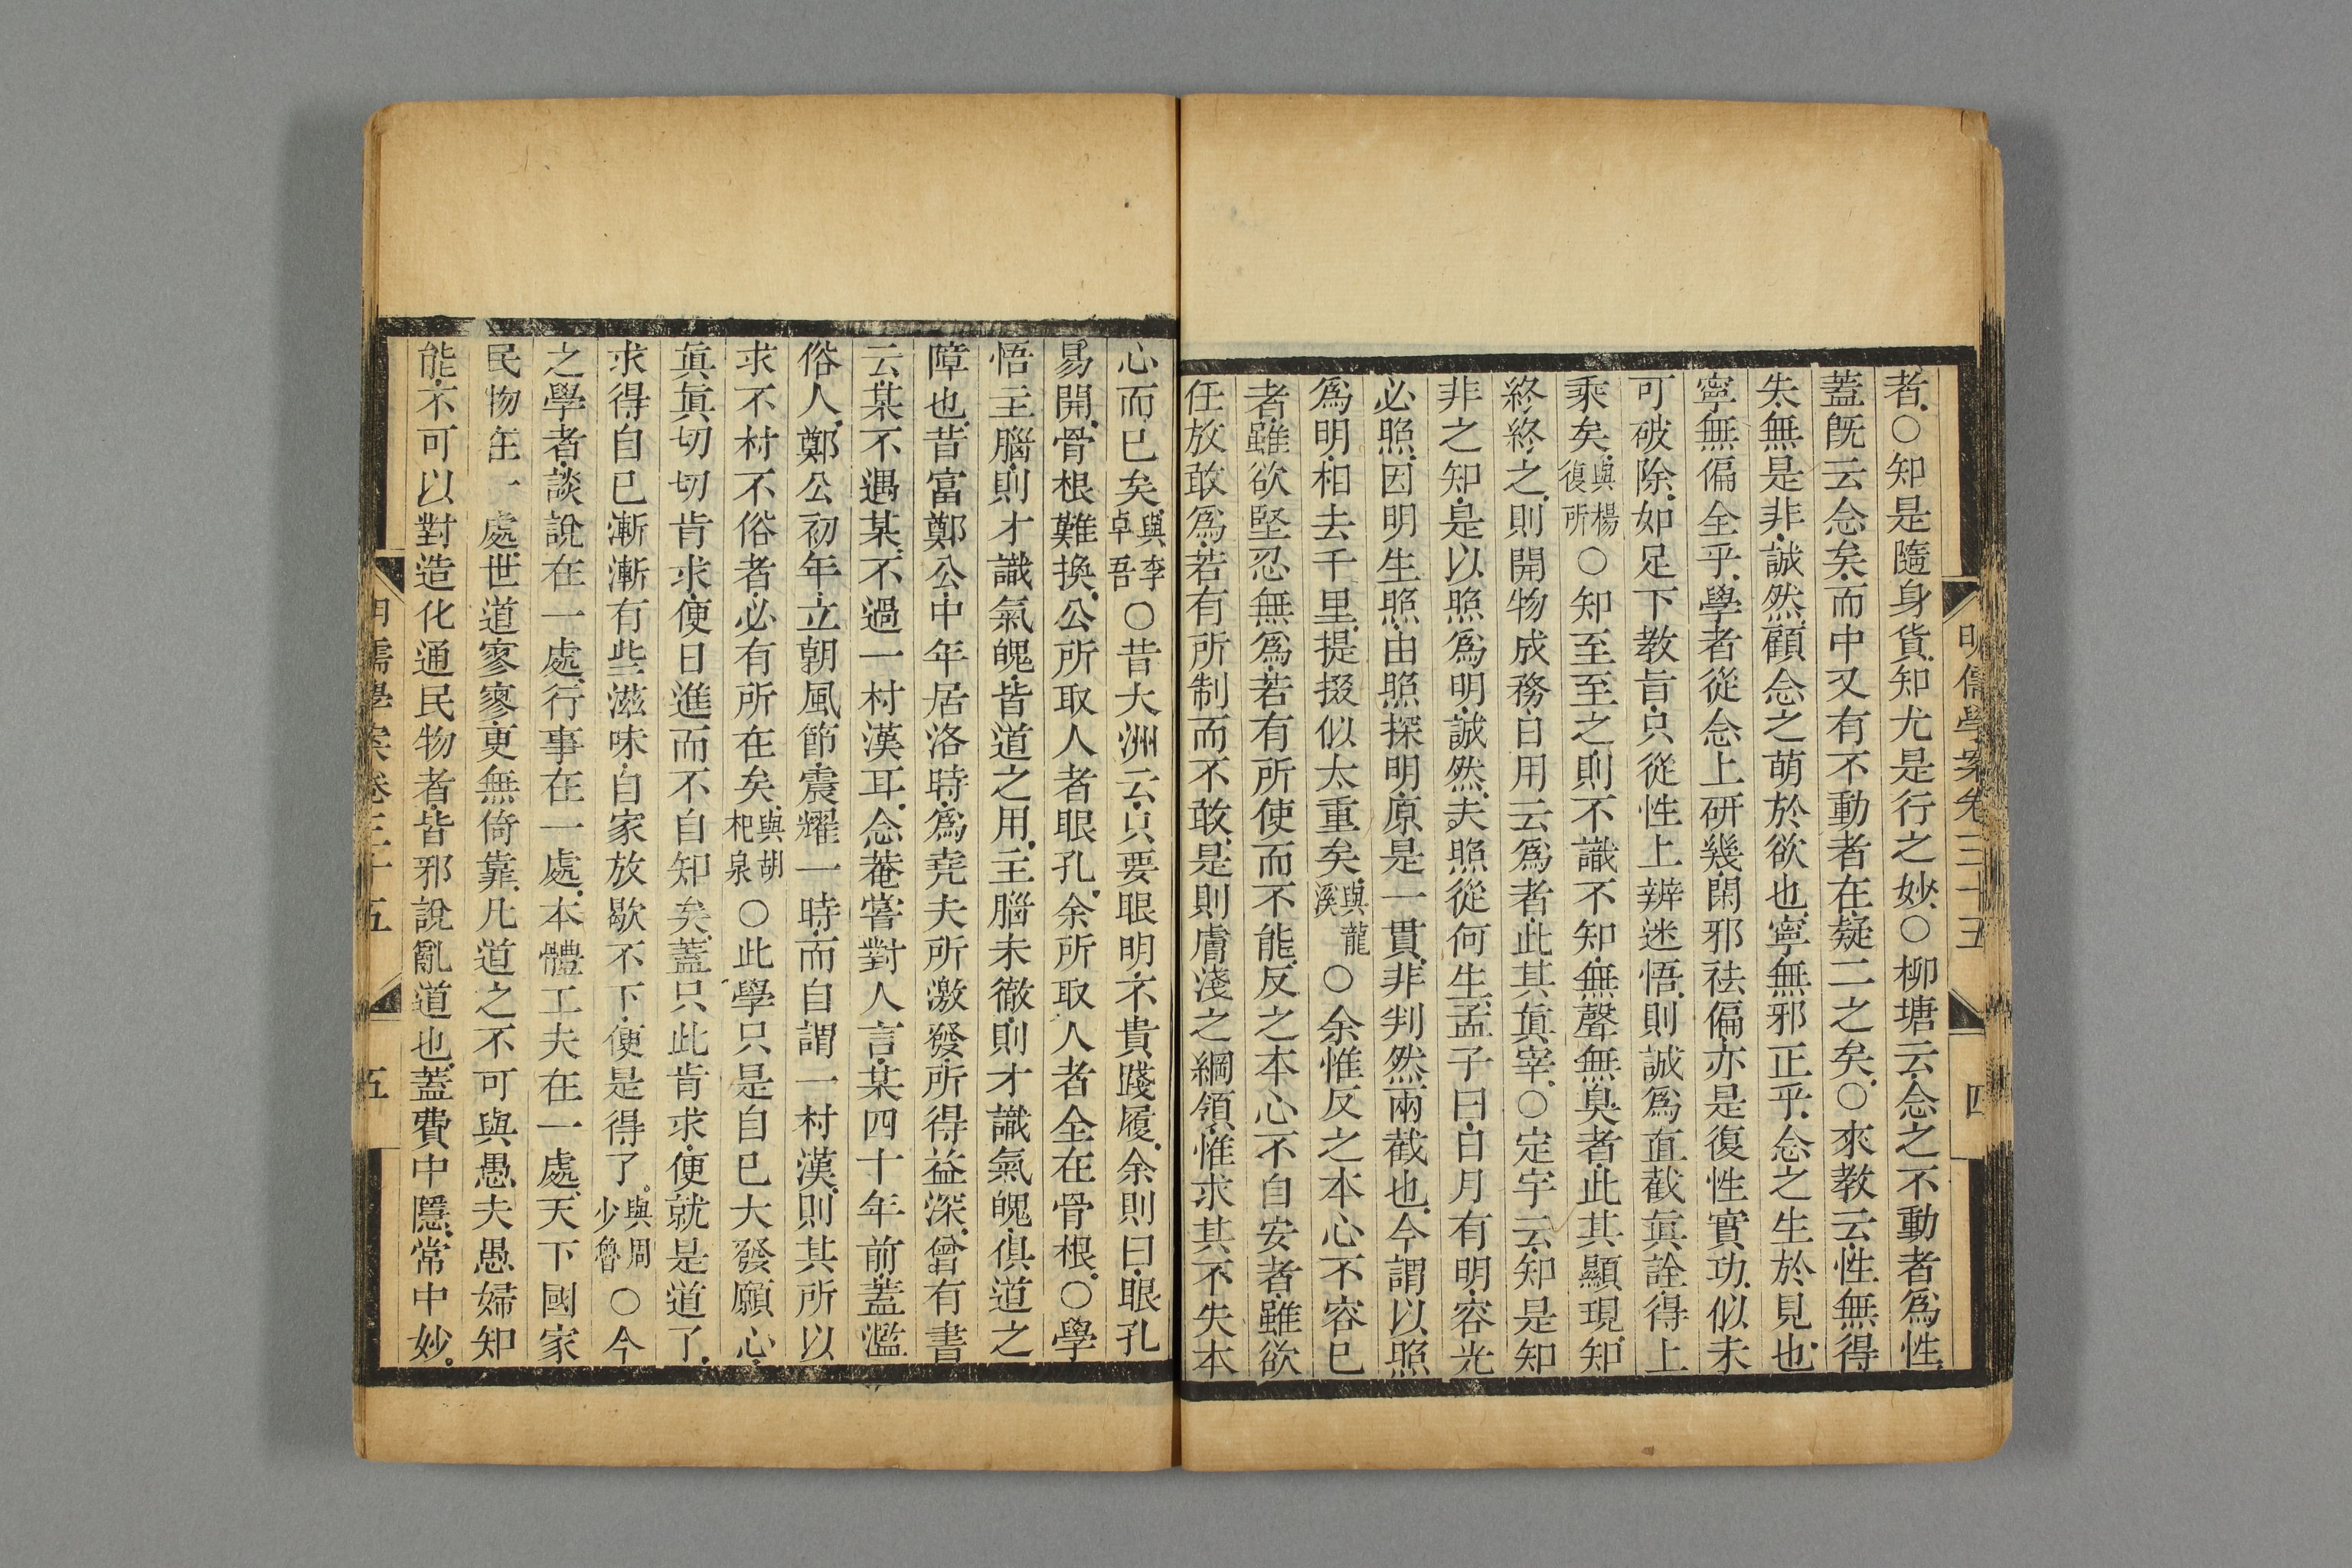 明儒學案卷三十五
四
者〇知是隨身貨知尤是行之妙〇柳塘云念之不動者爲性
蓋旣云念矣而中又有不動者在疑二之矣〇來敎云性無得
失無是非誠然顧念之萌於欲也寧無邪正乎念之生於見也
寧無偏全乎學者從念上硏幾閑邪祛偏亦是復性實功似未
可破除如足下敎旨只從性上辨迷悟則誠爲直截眞詮得上
乘矣與楊復所〇知至至之則不識不知無聲無臭者此其顯現知
終終之則開物成務日用云爲者此其眞宰〇定宇云知是知
非之知是以照爲明誠然夫照從何生孟子曰日月有明容光
必照因明生照由照探明原是一貫非判然兩截也今謂以照
爲明相去千里提掇似太重矣與龍溪〇余惟反之本心不容已
者雖欲堅忍無爲若有所使而不能反之本心不自安者雖欲
任放敢爲若有所制而不敢是則膚淺之綱領惟求其不失本
心而已矣與李卓吾〇昔大洲云只要眼明不貴踐履余則曰眼孔
易開骨根難換公所取人者眼孔余所取人者全在骨根〇學
悟主腦則才識氣魄皆道之用主腦未徹則才識氣魄俱道之
障也昔富鄭公中年居洛時爲堯夫所激發所得益深曾有書
云某不遇某不過一村漢耳念菴嘗對人言某四十年前蓋濫
俗人鄭公初年立朝風節震耀一時而自謂一村漢則其所以
求不村不俗者必有所在矣與胡杞泉〇此學只是自已大發願心
眞眞切切肯求便日進而不自知矣蓋只此肯求便就是道了
求得自已漸漸有些滋味自家放歇不下便是得了與周少魯〇今
之學者談說在一處行事在一處本體工夫在一處天下國家
民物在一處世道寥寥更無倚靠凡道之不可與愚夫愚婦知
能不可以對造化通民物者皆邪說亂道也蓋費中隱常中妙
明儒學案卷三十五
五